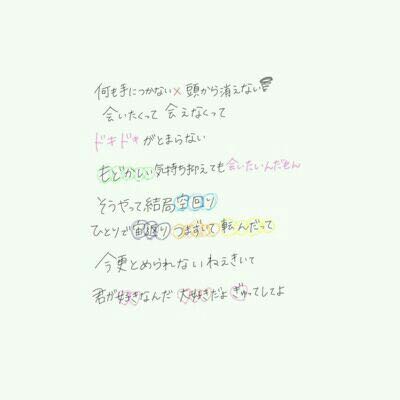 何も手につかない×頭から消えない
会いたくって 会えなくって
ドキドキがとまらない
もどかしい気持ち抑えても会いたいんだもん
そうやって結局空回り
ひとりで宙返りつまずいて転んだって
今更とめられないねえきいて
君が好きなんだ 大好きだよ ぎゅってしてよ